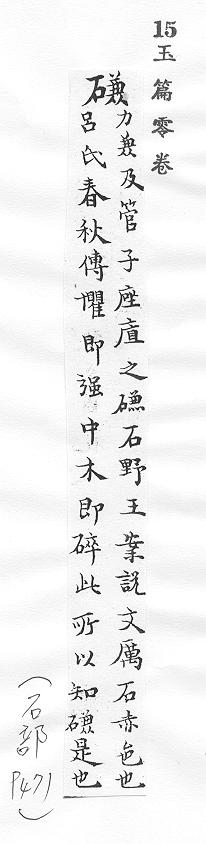 15 玉篇零卷
磏力兼及管子座之磏石野王案說文厲石赤色也
呂氏春秋傳懼即强中木即碎此所以知磏是也
(石部 P471)